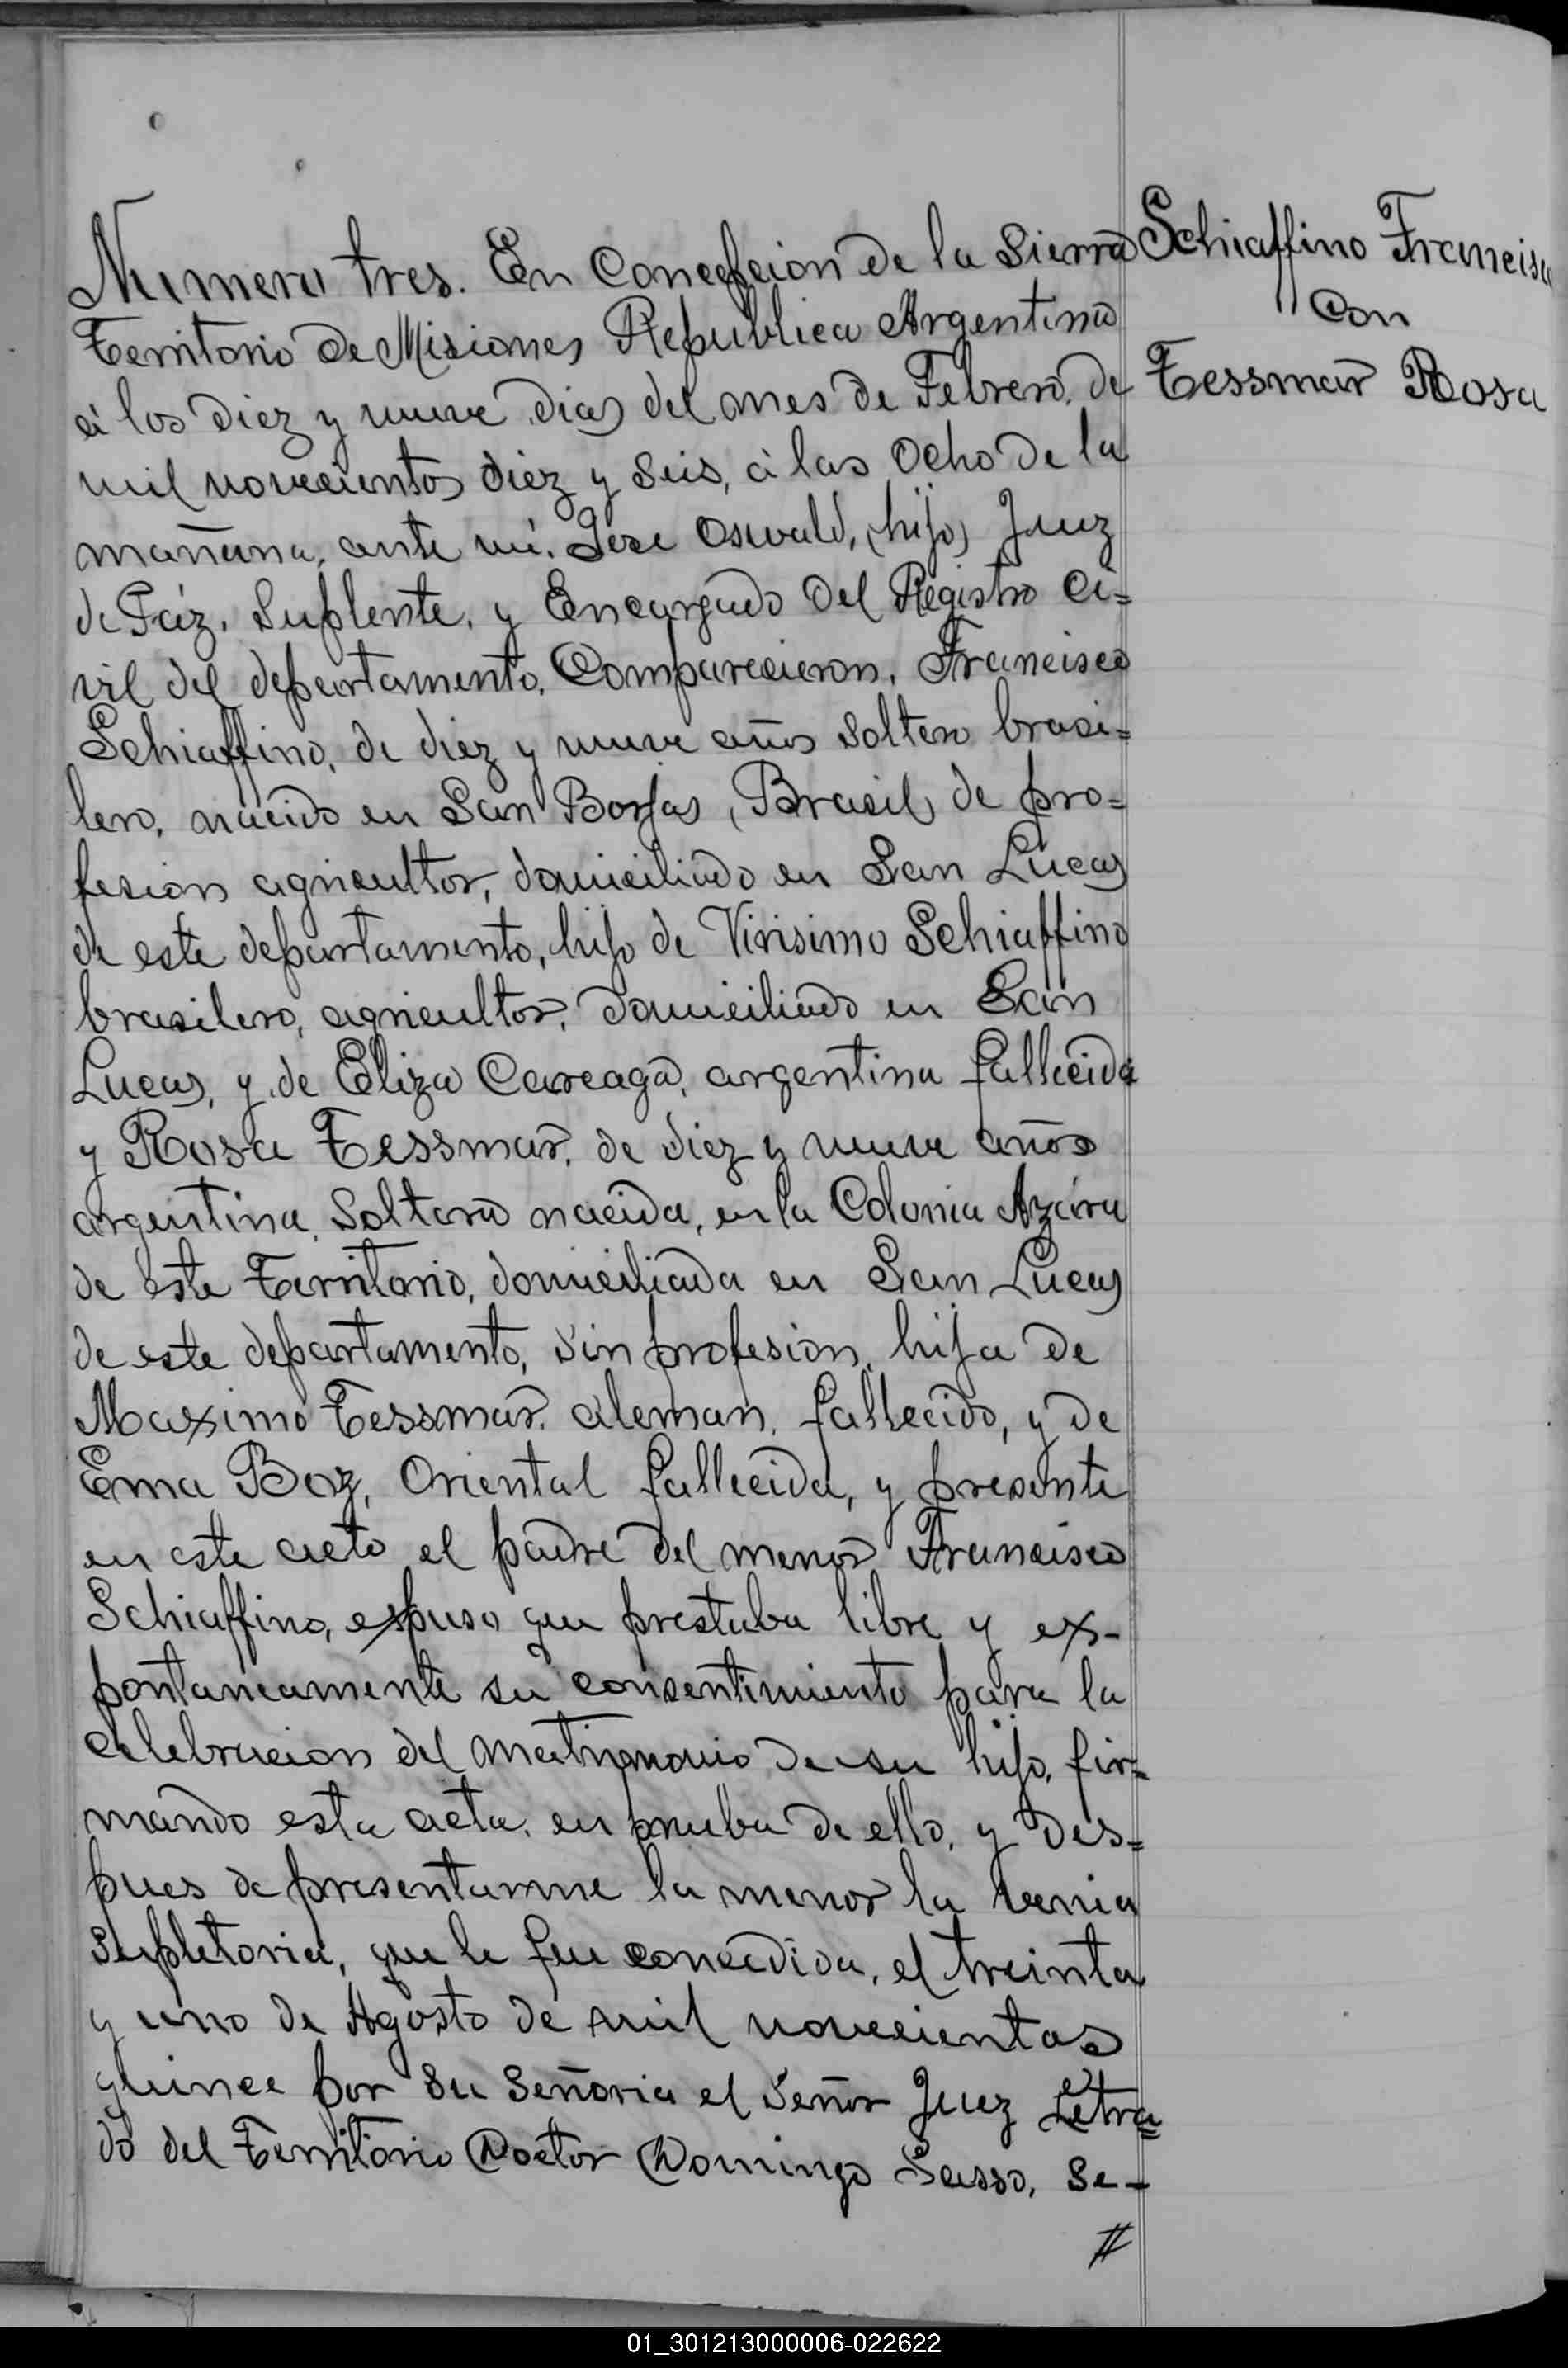 Schiaffino Francisco
con
Tessmar Rosa
Numero tres. En Concepcion de la Sierra
Territorio de Misiones Republica Argentina
á los diez y nueve dias del mes de Febrero de
mil novecientos diez y seis, á las ocho de la
mañana, ante mi. José Oswald, (hijo) Juez
de Páz, Suplente, y Encargado del Registro Ci=
vil del departamento, Comparecieron, Francisco
Schiaffino, de diez y nueve años soltero brasi=
lero, nacido en San Borjas, (Brasil) de pro=
fesion agricultor, domiciliado en San Lucas
de este departamento, hijo de Virisimo Schiaffino
brasilero, agricultor, domiciliado en San
Lucas, y de Eliza Careaga, argentina fallecida
y Rosa Tessmar, de diez y nueve años
argentina, Soltera nacida, en la Colonia Azára
de este Territorio, domiciliada en San Lucas
de este departamento, sin profesion, hija de
Maximo Tessmar, aleman, fallecido, y de
Ema Boz, Oriental fallecida, y presente
en este acto el padre del menor Francisco
Schiaffino, espuso que prestaba libre y ex-
pontaneamente su consentimiento para la
celebracion del matrimonio de su hijo, fir=
mando esta acta, en prueba de ello, y des=
pues de presentarme la menor la venia
supletoria, que le fue concedida, el treinta
y uno de Agosto de mil novecientos
quince por su Señoria el Señor Juez Letra=
do del Territorio Doctor Domingo Sasso, se-
//
01_301213000006-022622